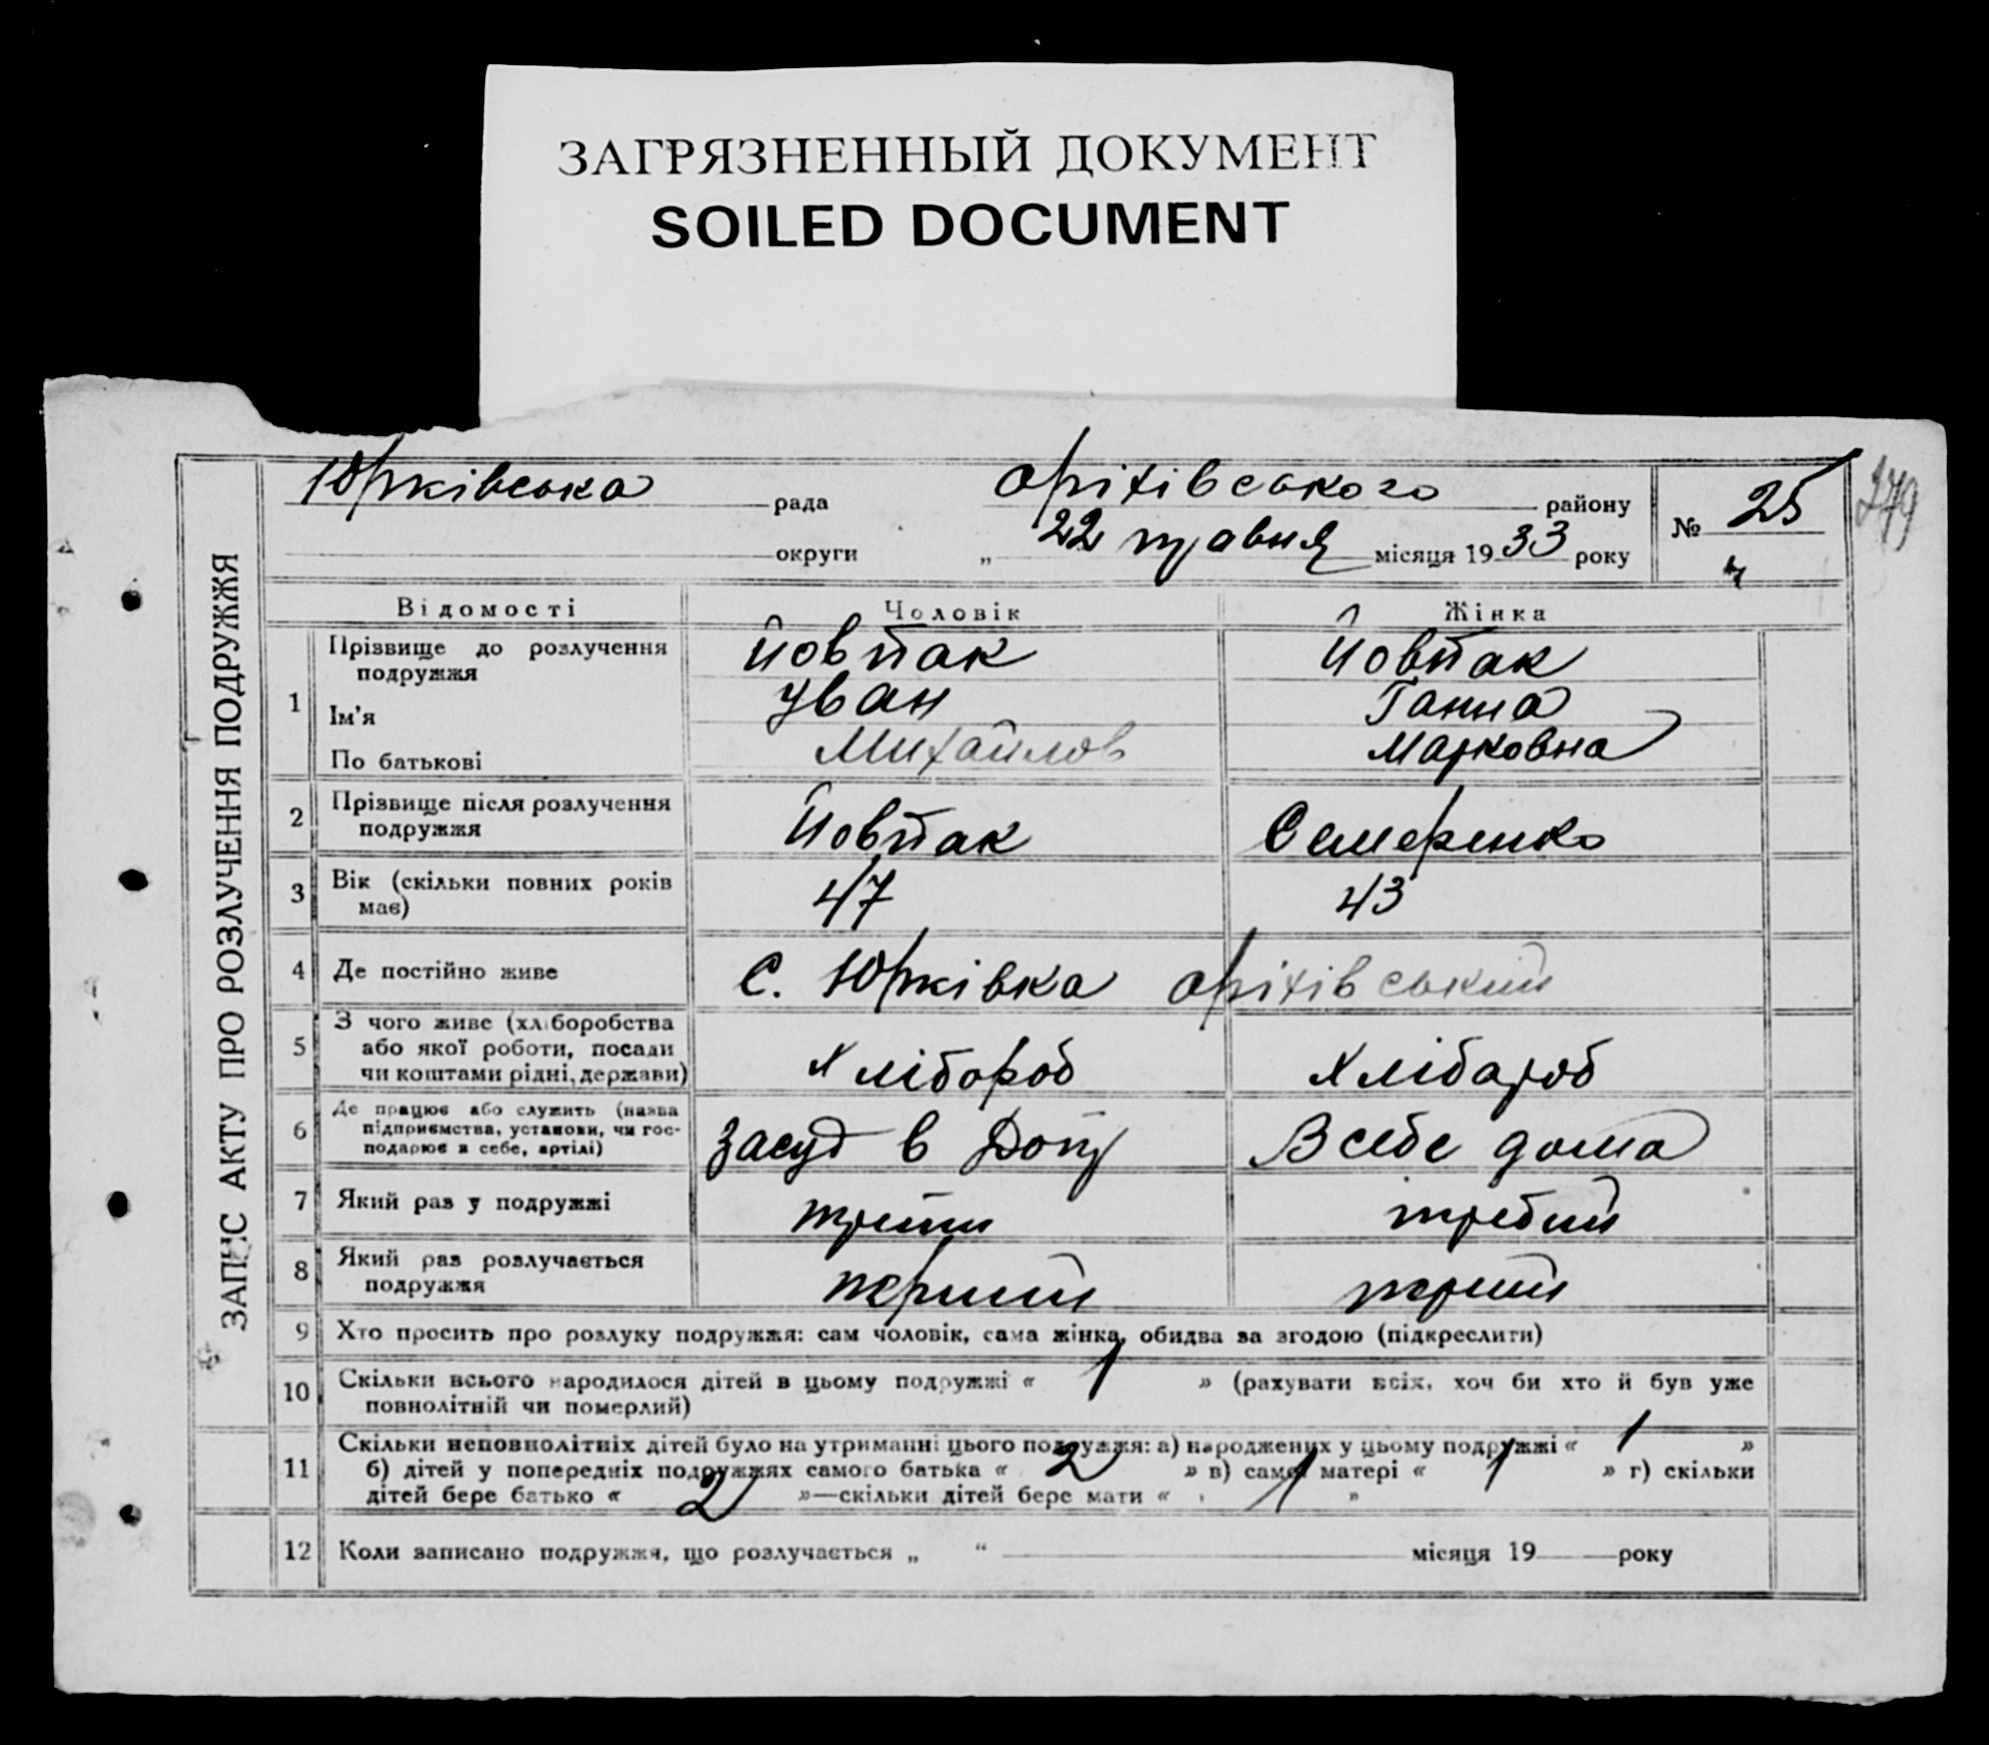 ЗАГРЯЗНЕННЫЙ ДОКУМЕНТ
SOILED DOCUMENT
ЗАПИС АКТУ ПРО РОЗЛУЧЕННЯ ПОДРУЖЖЯ
Юрківська рада оріхівського району № 25
округи „ 22 травня місяця 1933 року
279
Відомості Чоловік Жінка
1 Прізвище до розлучення подружжя Йовпак Йовпак
Ім'я Іван Ганна
По батькові Михайлов Марковна
2 Прізвище після розлучення подружжя Йовпак Семеренко
3 Вік (скільки повних років має) 47 43
4 Де постійно живе С. Юрківка оріхівський
5 З чого живе (хліборобства або якої роботи, посади чи коштами рідні, держави) Хлібороб Хлібароб
6 Де працює або служить (назва підприємства, установи, чи господарює в себе, артілі) засуд в Допр В себе дома
7 Який раз у подружжі третій
8 Який раз розлучається подружжя перший перший
9 Хто просить про розлуку подружжя: сам чоловік, сама жінка, обидва за згодою (підкреслити)
10 Скільки всього народилося дітей в цьому подружжі « 1 » (рахувати всіх, хоч би хто й був уже
повнолітній чи померлий)
11 Скільки неповнолітніх дітей було на утриманні цього подружжя: а) народжених у цьому подружжі « 1 »
б) дітей у попередніх подружжях самого батька « 2 » в) самої матері « 1 » г) скільки
дітей бере батько « 2 »—скільки дітей бере мати « 1 »
12 Коли записано подружжя, що розлучається „ “ місяця 19 року